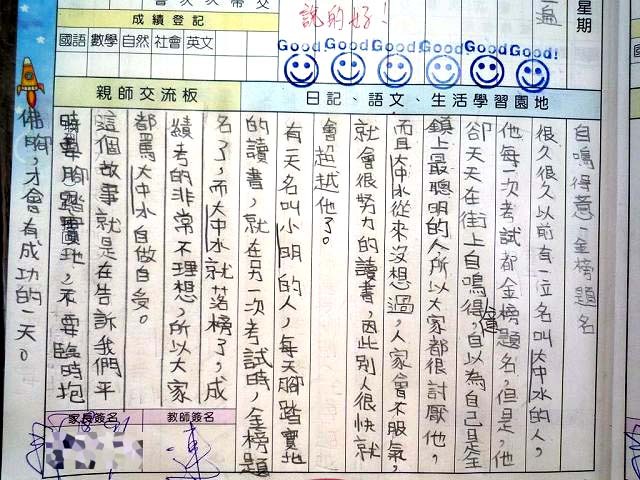 說的好！
星期
成績登記
國語 數學 自然 社會 英文
Good! Good! Good! Good! Good! Good!
日記、語文、生活學習園地
親師交流板
自鳴得意－金榜題名
很久很久以前有一位名叫大中水的人，
他每一次考試都金榜題名，但是，他
卻天天在街上自鳴得意，自以為自己是全
鎮上最聰明的人所以大家都很討厭他，
而且大中水從來沒想過，人家會不服氣，
就會很努力的讀書，因此別人很快就
會超越他了。
有一天名叫小明的人，每天腳踏實地
的讀書，就在另一次考試時，金榜題
名了，而大中水就落榜了，成
績考的非常不理想，所以大家
都罵大中水自做自受。
這個故事就是在告訴我們平
時要腳踏實地，不要臨時抱
佛腳，才會有成功的一天。
家長簽名
教師簽名